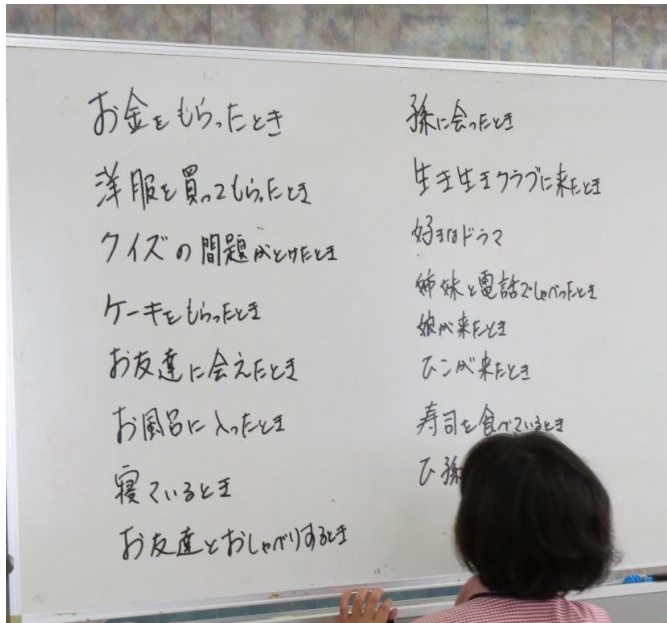 お金をもらったとき
洋服を買ってもらったとき
クイズの問題がとけたとき
ケーキをもらったとき
お友達に会えたとき
お風呂に入ったとき
寝ているとき
お友達とおしゃべりするとき
孫に会ったとき
生き生きクラブに来たとき
好きなドラマ
姉妹と電話でしゃべったとき
娘が来たとき
ひこが来たとき
寿司を食べているとき
ひ孫